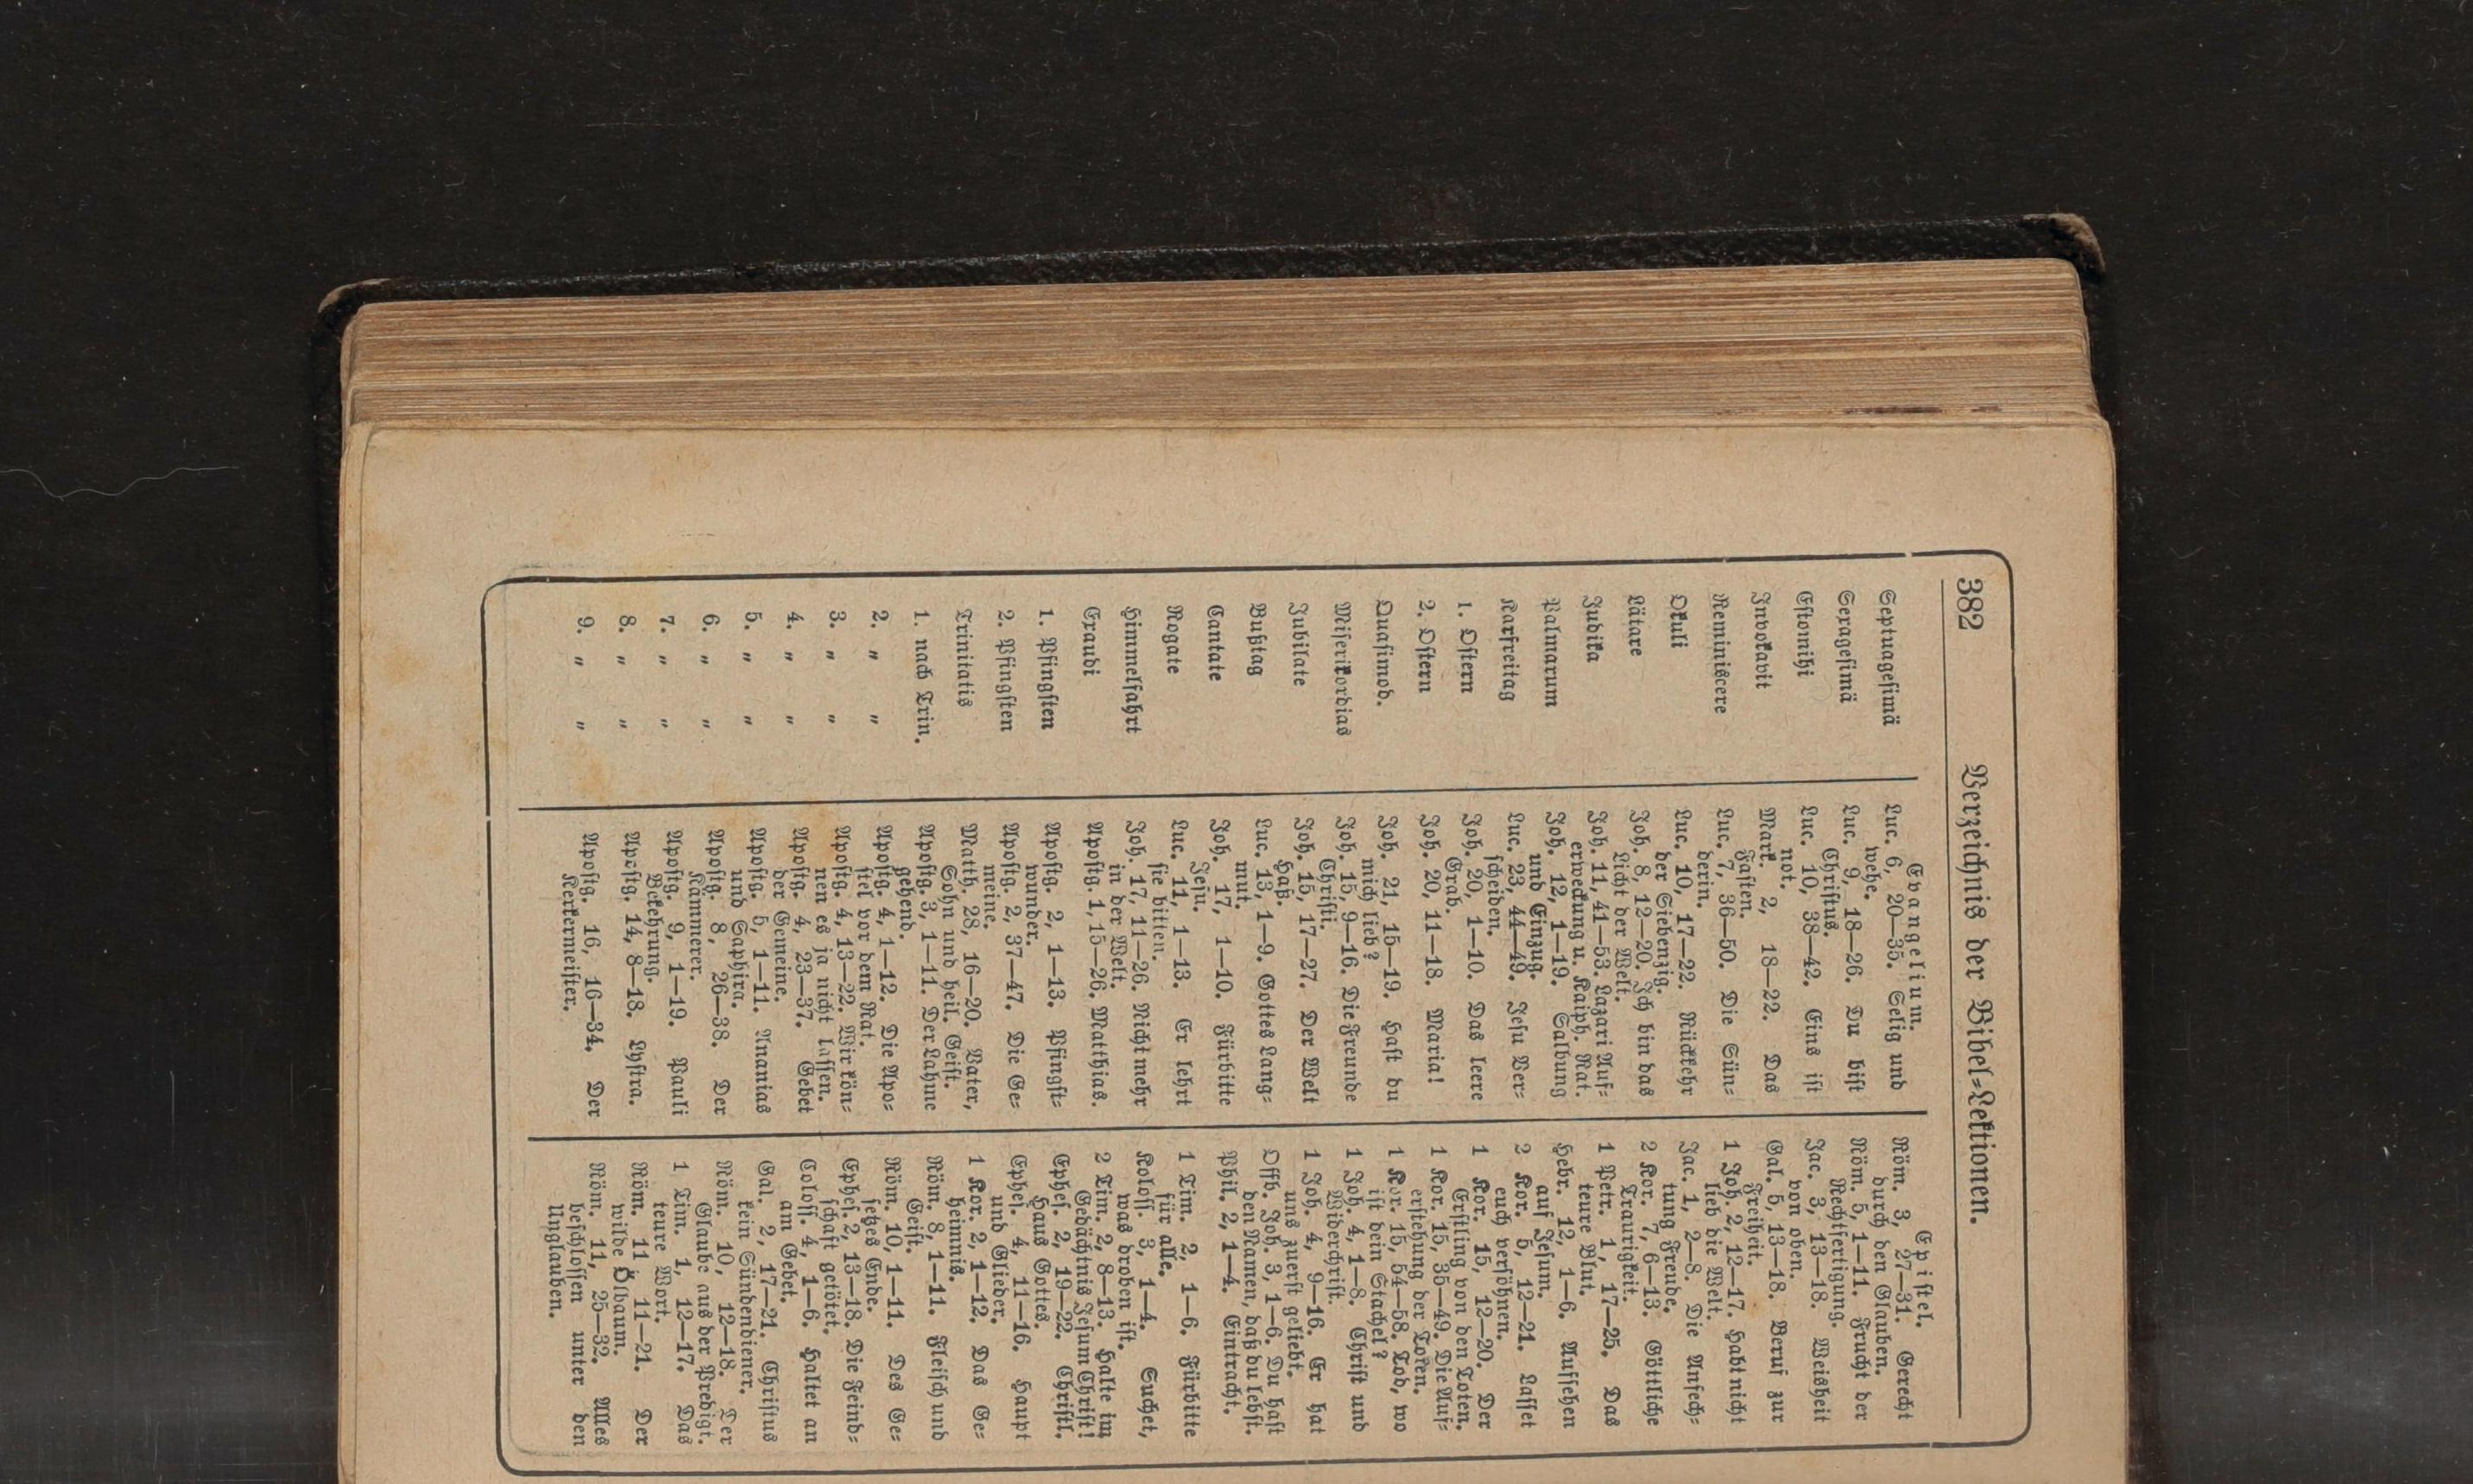 382 Verzeichnis der Bibel-Lektionen.
Evangelium. Epistel.
Septuagesimä Luc. 6, 20—35. Selig und Röm. 3, 27—31. Gerecht
wehe. durch den Glauben.
Sexagesimä Luc. 9, 18—26. Du bist Röm. 5, 1—11. Frucht der
Christus. Rechtfertigung.
Estomihi Luc. 10, 38—42. Eins ist Jac. 3, 13—18. Weisheit
not. von oben.
Invokavit Mark. 2, 18—22. Das Gal. 5, 13—18. Beruf zur
Fasten. Freiheit.
Reminiscere Luc. 7, 36—50. Die Sün- 1 Joh. 2, 12—17. Habt nicht
derin. lieb die Welt.
Okuli Luc. 10, 17—22. Rückkehr Jac. 1, 2—8. Die Anfech-
der Siebenzig. tung Freude.
Lätare Joh. 8, 12—20. Ich bin das 2 Kor. 7, 6—13. Göttliche
Licht der Welt. Traurigkeit.
Judika Joh. 11, 41—53. Lazari Auf- 1 Petr. 1, 17—25. Das
erweckung u. Kaiph. Rat. teure Blut.
Palmarum Joh. 12, 1—19. Salbung Hebr. 12, 1—6. Aufsehen
und Einzug. auf Jesum.
Karfreitag Luc. 23, 44—49. Jesu Ver- 2 Kor. 5, 12—21. Lasset
scheiden. euch versöhnen.
1. Ostern Joh. 20, 1—10. Das leere 1 Kor. 15, 12—20. Der
Grab. Erstling von den Toten.
2. Ostern Joh. 20, 11—18. Maria! 1 Kor. 15, 35—49. Die Auf-
erstehung der Toten.
Quasimod. Joh. 21, 15—19. Hast du 1 Kor. 15, 54—58. Tod, wo
mich lieb? ist dein Stachel?
Miserikordias Joh. 15, 9—16. Die Freunde 1 Joh. 4, 1—8. Christ und
Christi. Widerchrist.
Jubilate Joh. 15, 17—27. Der Welt 1 Joh. 4, 9—16. Er hat
Haß. uns zuerst geliebt.
Bußtag Luc. 13, 1—9. Gottes Lang- Offb. Joh. 3, 1—6. Du hast
mut. den Namen, daß du lebst.
Cantate Joh. 17, 1—10. Fürbitte Phil. 2, 1—4. Eintracht.
Jesu.
Rogate Luc. 11, 1—13. Er lehrt 1 Tim. 2, 1—6. Fürbitte
sie bitten. für alle.
Himmelfahrt Joh. 17, 11—26. Nicht mehr Koloss. 3, 1—4. Suchet,
in der Welt. was droben ist.
Exaudi Apostg. 1, 15—26. Matthias. 2 Tim. 2, 8—13. Halte im
Gedächtnis Jesum Christ!
1. Pfingsten Apostg. 2, 1—13. Pfingst- Ephes. 2, 19—22. Christl.
wunder. Haus Gottes.
2. Pfingsten Apostg. 2, 37—47. Die Ge- Ephes. 4, 11—16. Haupt
meine. und Glieder.
Trinitatis Math. 28, 16—20. Vater, 1 Kor. 2, 1—12. Das Ge-
Sohn und heil. Geist. heimnis.
1. nach Trin. Apostg. 3, 1—11. Der Lahme Röm. 8, 1—11. Fleisch und
gehend. Geist.
2. " " Apostg. 4, 1—12. Die Apo- Röm. 10, 1—11. Des Ge-
stel vor dem Rat. setzes Ende.
3. " " Apostg. 4, 13—22. Wir kön- Ephes. 2, 13—18. Die Feind-
nen es ja nicht lassen. schaft getötet.
4. " " Apostg. 4, 23—37. Gebet Coloss. 4, 1—6. Haltet an
der Gemeine. am Gebet.
5. " " Apostg. 5, 1—11. Ananias Gal. 2, 17—21. Christus
und Saphira. kein Sündendiener.
6. " " Apostg. 8, 26—38. Der Röm. 10, 12—18. Der
Kämmerer. Glaube aus der Predigt.
7. " " Apostg. 9, 1—19. Pauli 1 Tim. 1, 12—17. Das
Bekehrung. teure Wort.
8. " " Apostg. 14, 8—18. Lystra. Röm. 11, 11—21. Der
wilde Ölbaum.
9. " " Apostg. 16, 16—34. Der Röm. 11, 25—32. Alles
Kerkermeister. beschlossen unter den
Unglauben.